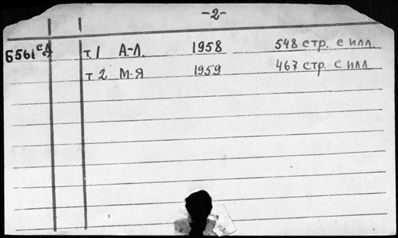 -2-
т. 1 А-Л. 1958 548 стр. с илл.
т 2 М-Я 1959 467 стр. с илл.